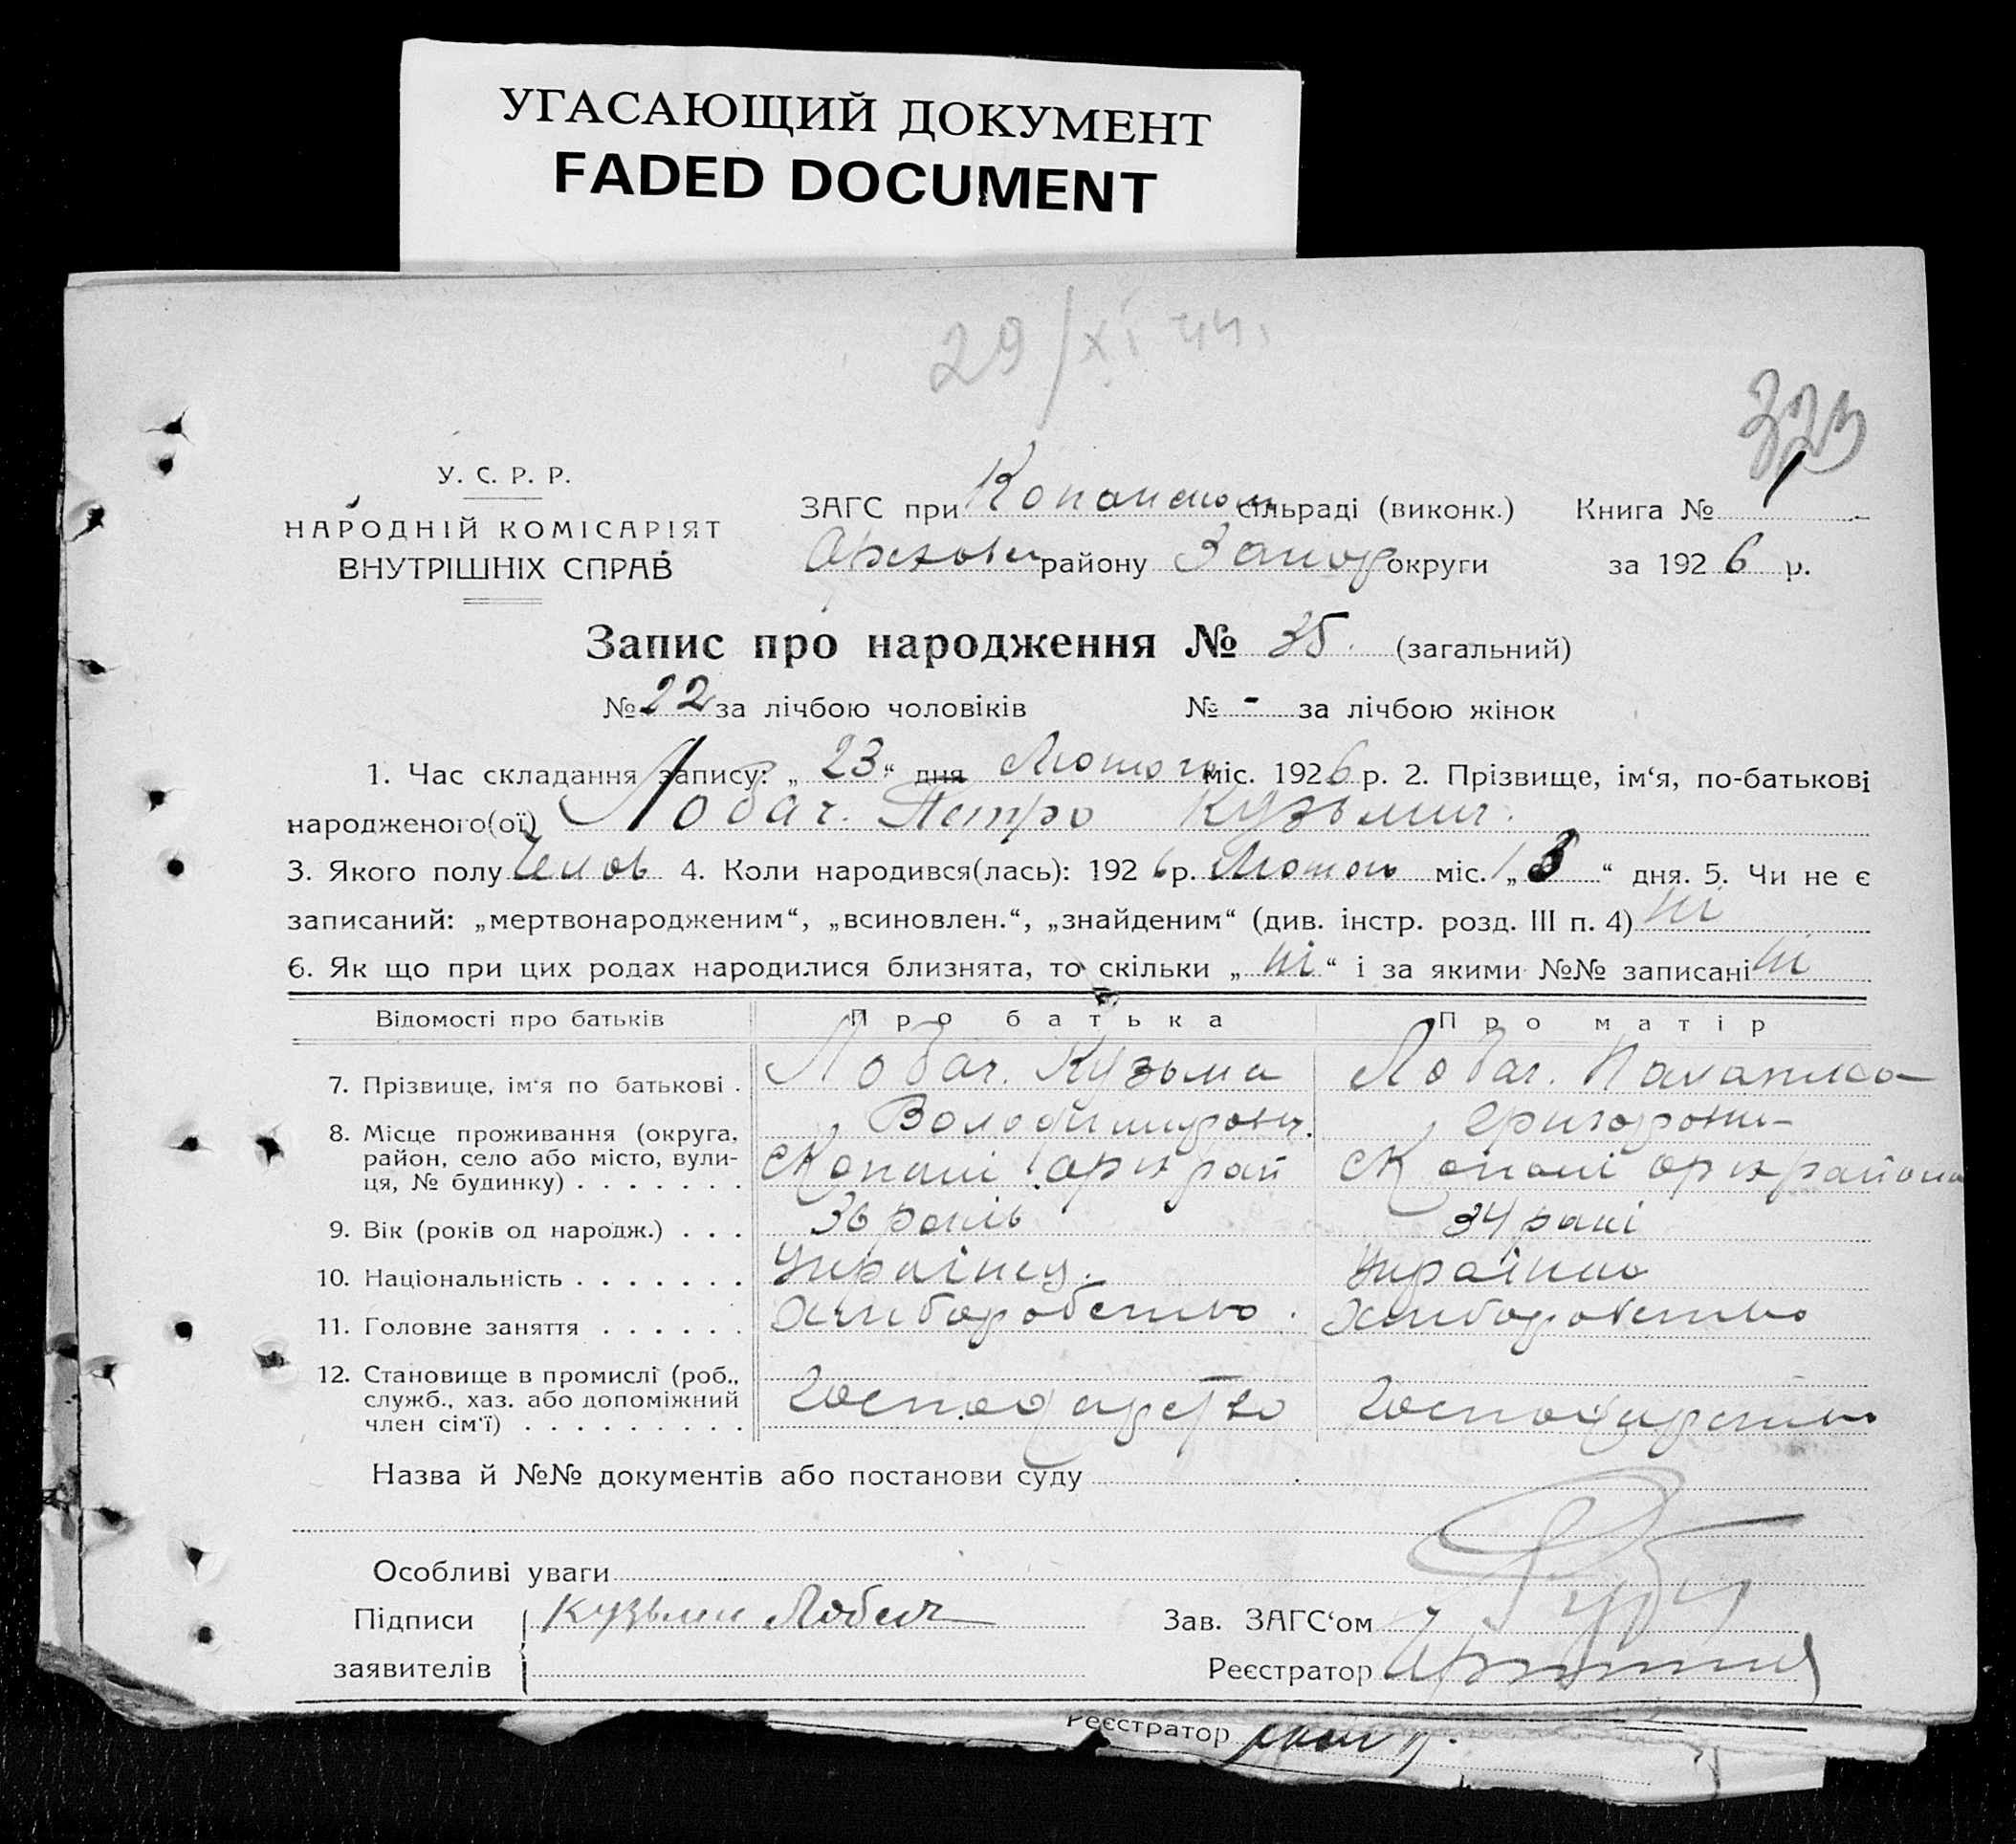 УГАСАЮЩИЙ ДОКУМЕНТ
FADED DOCUMENT
29/XI 44.
У. С. Р. Р.
НАРОДНІЙ КОМІСАРІЯТ
ВНУТРІШНІХ СПРАВ
ЗАГС при сільраді (виконк.) Книга № 1
району Запор округи за 1926 р.
Запис про народження № 35. (загальний)
№ 22 за лічбою чоловіків № - за лічбою жінок
1. Час складання запису: „ 23 “ дня Лютого міс. 1926 р. 2. Прізвище, ім‘я, по-батькові
народженого(ої) Лобач. Петро Кузьмич.
3. Якого полу Чолов 4. Коли народився(лась): 1926 р. Лютого міс. „ “ дня. 5. Чи не є
записаний: „мертвонародженим“, „всиновлен.“, „знайденим“ (див. інстр. розд. III п. 4) ні
6. Як що при цих родах народилися близнята, то скільки „ ні “ і за якими №№ записані ні
Відомості про батьків Про батька Про матір
7. Прізвище, ім‘я по батькові . Лобач. Кузьма Лобач.
8. Місце проживання (округа, район, село або місто, вулиця, № будинку) . . . . . . . с Копані с Копані
9. Вік (років од народж.) . . . 36 років 34 рокі
10. Національність . . . . . . . Українец. Українка
11. Головне заняття . . . . . . Хлиборобство . Хлиборобство
12. Становище в промислі (роб., служб., хаз. або допоміжний член сім‘ї) . . . . . . . . . Господарство Господарство
Назва й №№ документів або постанови суду
Особливі уваги
Підписи Кузьма Лобач Зав. ЗАГС‘ом
заявителів Реєстратор
Реєстратор